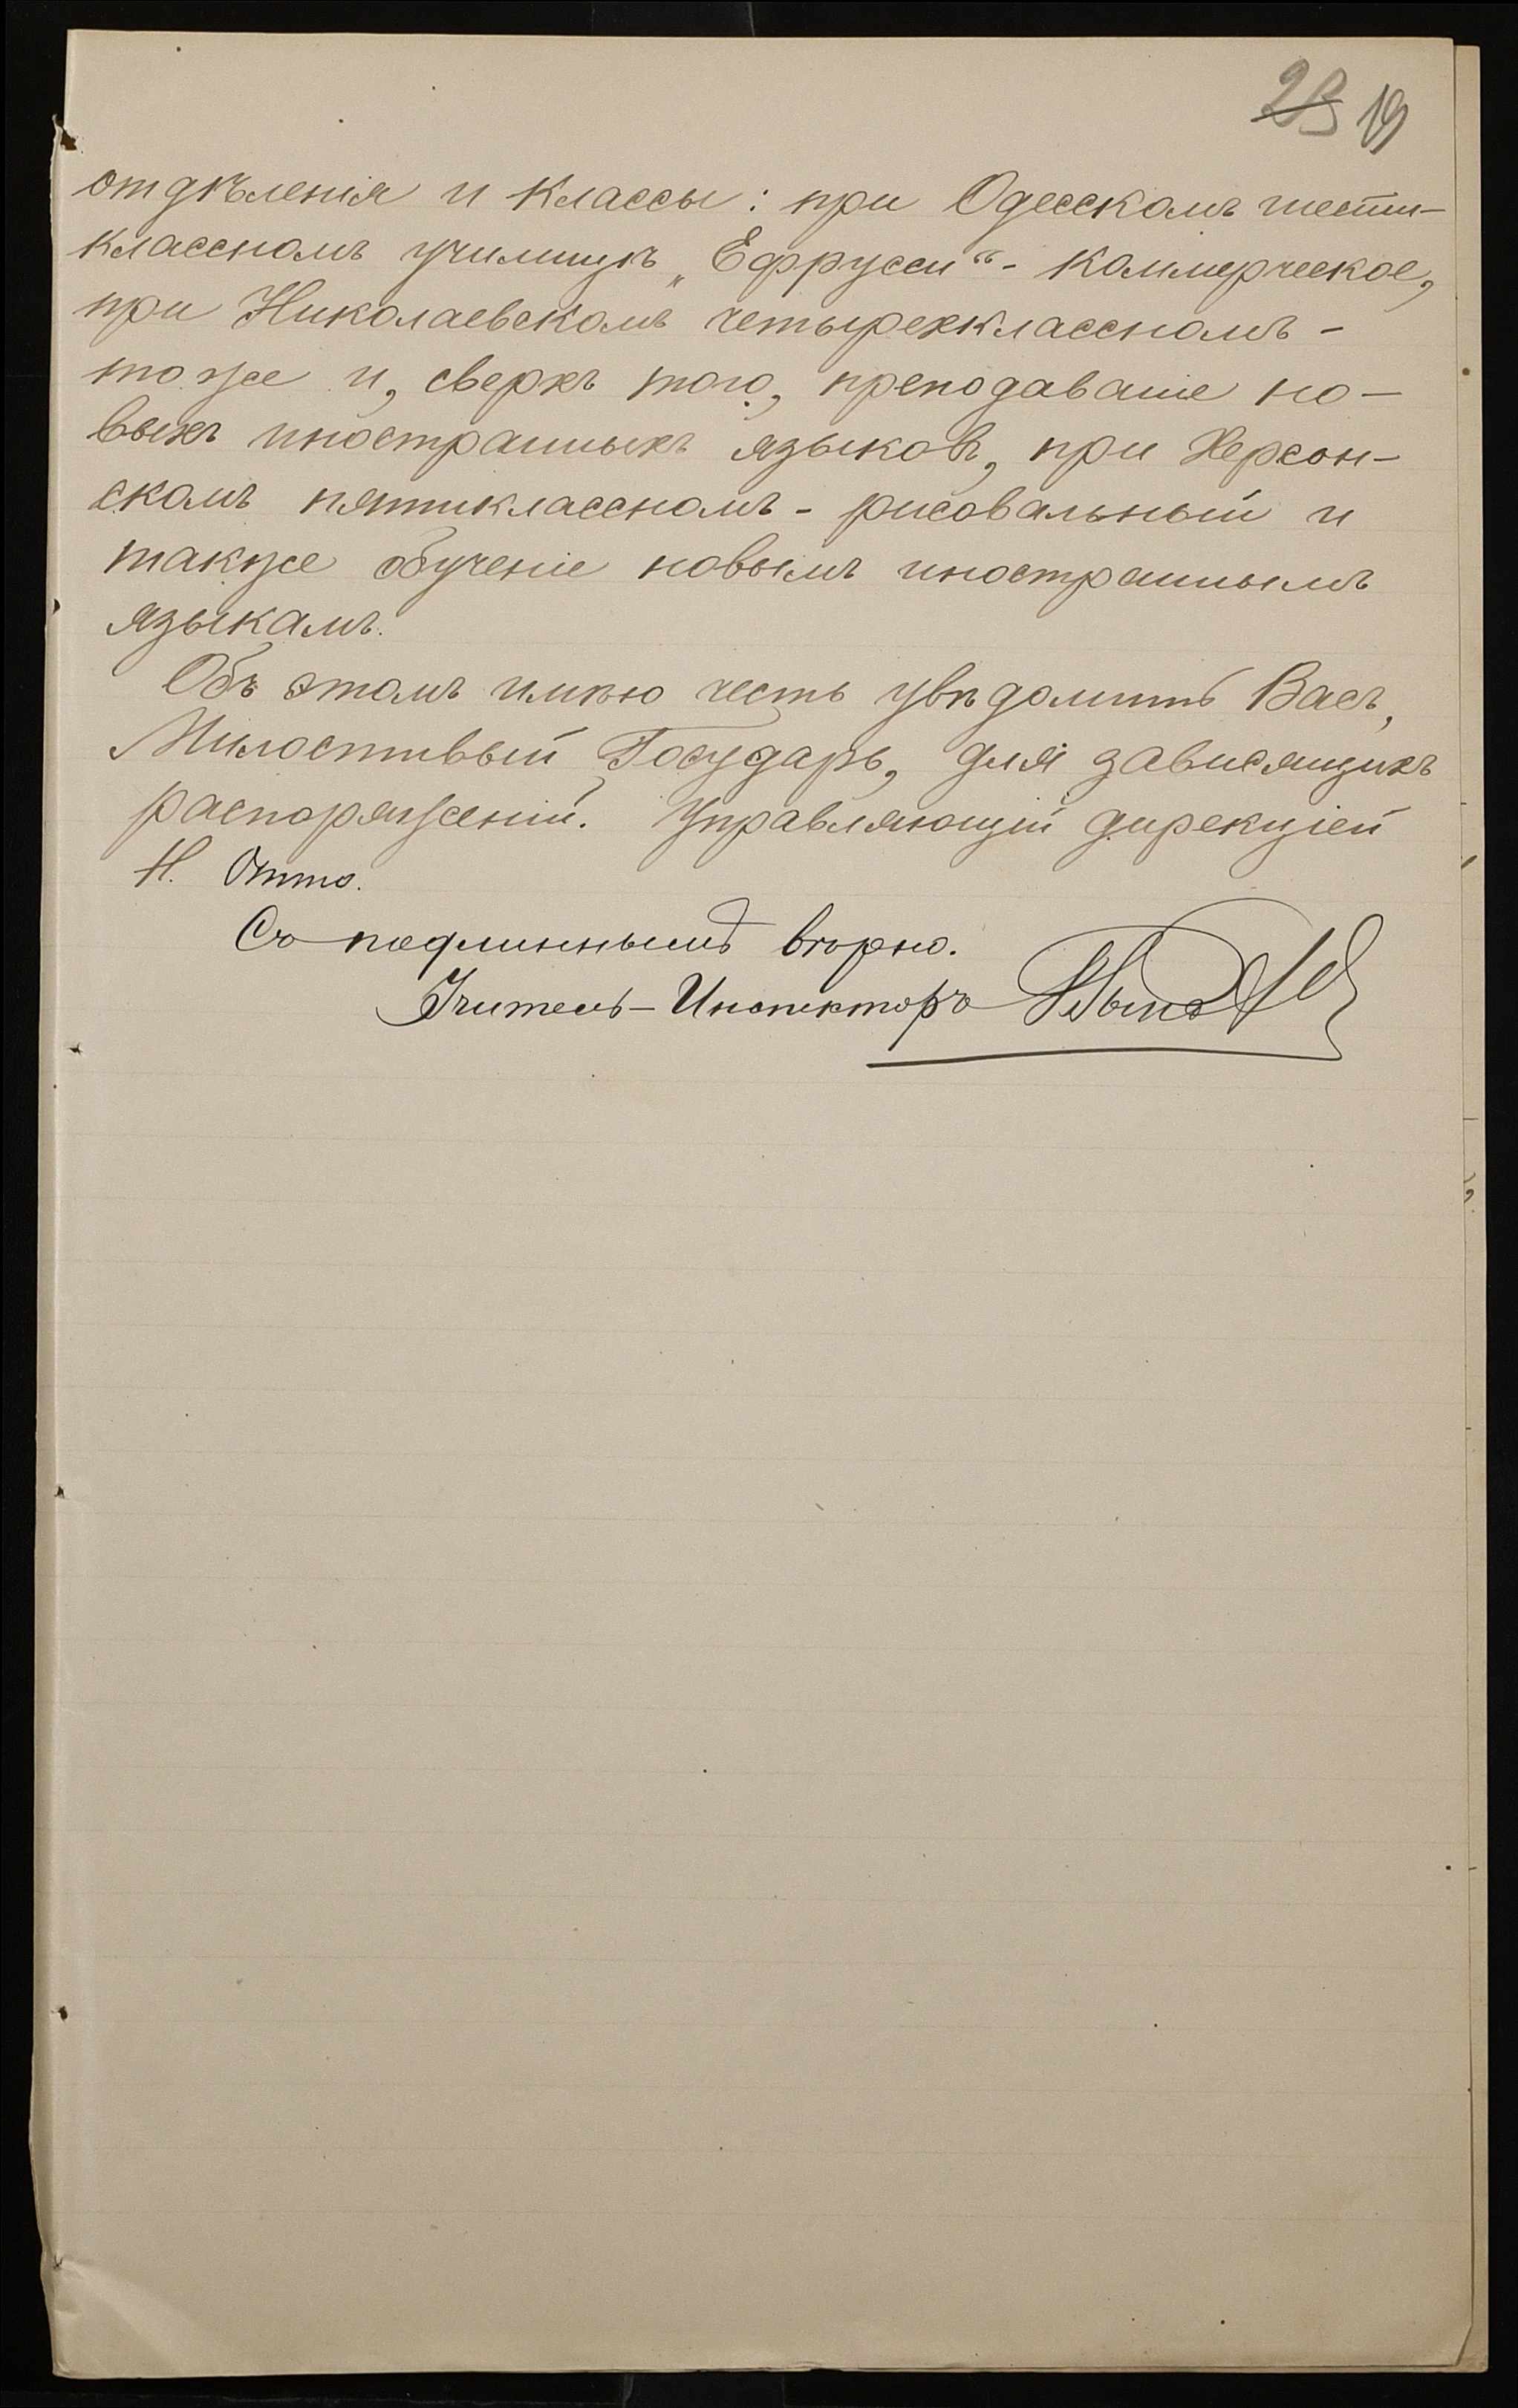 19
отдѣленія и классы: при Одесскомъ шести-
классномъ училищѣ „Ефрусси“ - коммерческое,
при Николаевскомъ четырехклассномъ -
тоже и, сверхъ того, преподаваніе но-
выхъ иностранныхъ языковъ, при Херсон-
скомъ пятиклассномъ - рисовальный и
также обученіе новымъ иностраннымъ
языкамъ.
Объ этомъ имѣю честь увѣдомить Васъ,
Милостивый Государь, для зависящихъ
распоряженій. Управляющій дирекціей
Н. Отто.
Съ подлиннымъ вѣрно.
Учитель-Инспекторъ